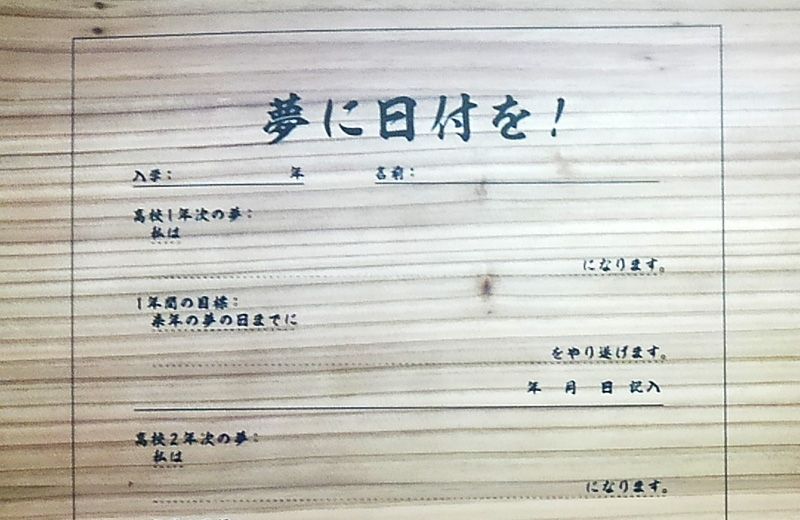 夢に日付を!
入学: 年 名前:
高校1年次の夢:
私は
になります。
1年間の目標:
来年の夢の日までに
をやり遂げます。
年 月 日 記入
高校2年次の夢:
私は
になります。